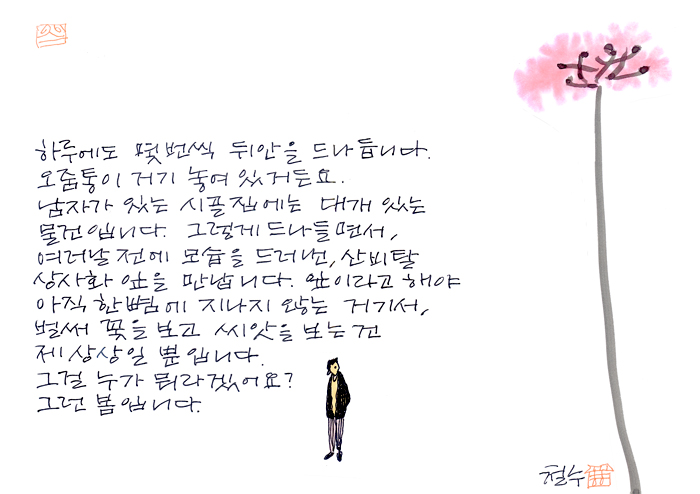 하루에도 몇번씩 뒤안을 드나듭니다.
오줌통이 거기 놓여 있거든요.
남자가 있는 시골집에는 대개 있는
물건입니다. 그렇게 드나들면서,
여러날 전에 모습을 드러낸, 산비탈
상사화 앞을 만납니다. 잎이라고 해야
아직 한뼘에 지나지 않는 거기서,
벌써 꽃을 보고 씨앗을 보는 건
제 상상일 뿐입니다.
그걸 누가 뭐라겠어요?
그런 봄입니다.
철수